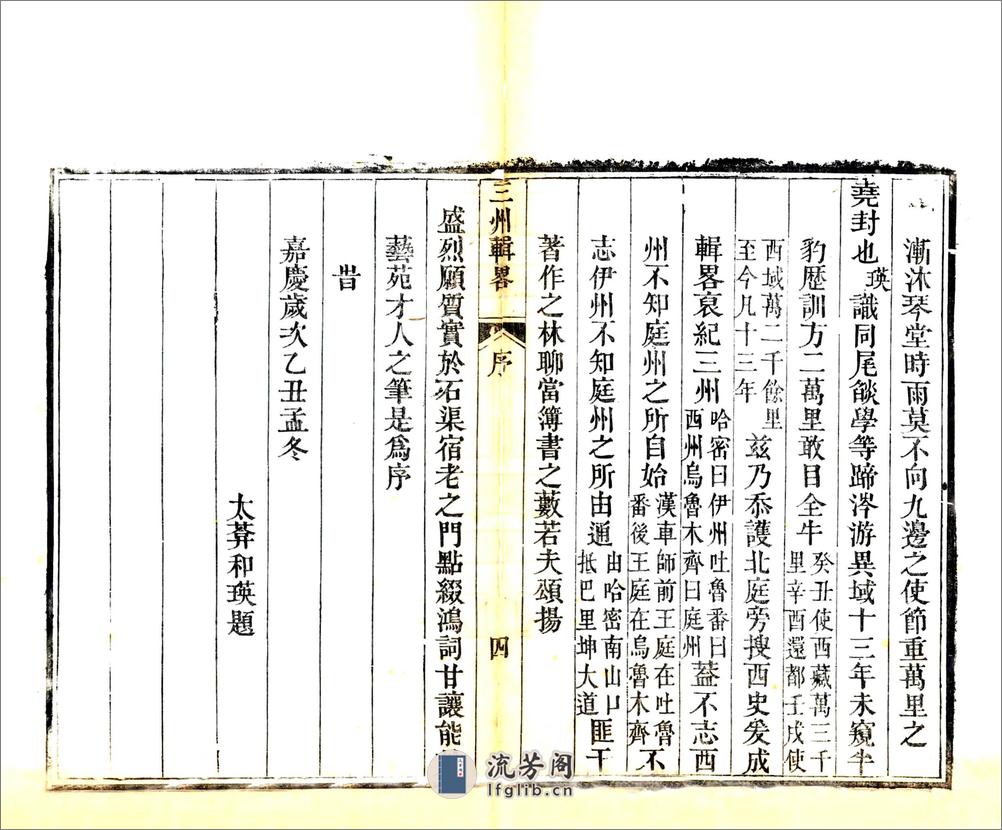 漸沐琴堂時雨莫不向九邊之使節重萬里之
堯封也瑛識同尾燄學等蹄涔游異域十三年未窺半
豹歷訓方二萬里敢目全牛癸丑使西藏萬三千里辛酉還都壬戌使
西域萬二千餘里至今凡十三年茲乃忝護北庭旁搜西史爰成
輯畧裒紀三州哈密曰伊州吐魯番曰西州烏魯木齊曰庭州葢不志西
州不知庭州之所自始漢車師前王庭在吐魯番後王庭在烏魯木齊不
志伊州不知庭州之所由通由哈密南山口抵巴里坤大道匪干
著作之林聊當簿書之藪若夫頌揚
三州輯畧 序 四
盛烈願質實於石渠宿老之門點綴鴻詞甘讓能於
藝苑才人之筆是爲序
旹
嘉慶歲次乙丑孟冬
太葊和瑛題
流芳阁
lfglib.cn